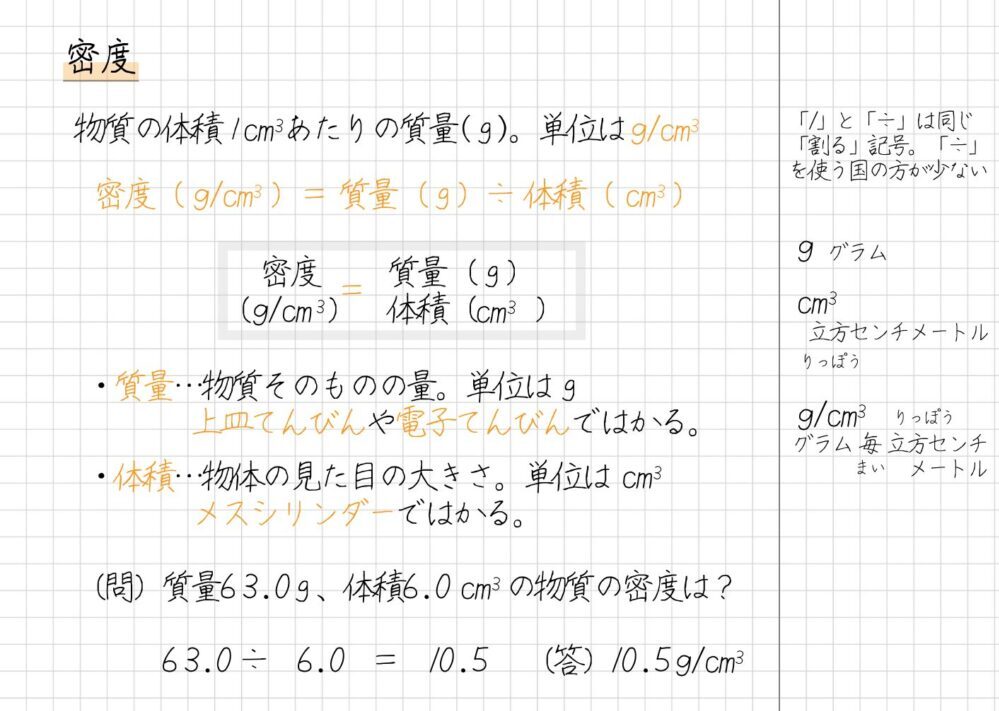 密度
物質の体積1cm³あたりの質量(g)。単位はg/cm³
密度(g/cm³)=質量(g)÷体積(cm³)
密度 = 質量(g)
(g/cm³) 体積(cm³ )
・質量…物質そのものの量。単位はg
上皿てんびんや電子てんびんではかる。
・体積…物体の見た目の大きさ。単位は cm³
メスシリンダーではかる。
(問) 質量63.0g、体積6.0 cm³の物質の密度は?
63.0÷ 6.0 = 10.5 (答) 10.5g/cm³
「/」と「÷」は同じ
「割る」記号。「÷」
を使う国の方が少ない
g グラム
cm³
立方センチメートル
りっぽう
g/cm³ りっぽう
グラム 毎 立方センチ
まい メートル